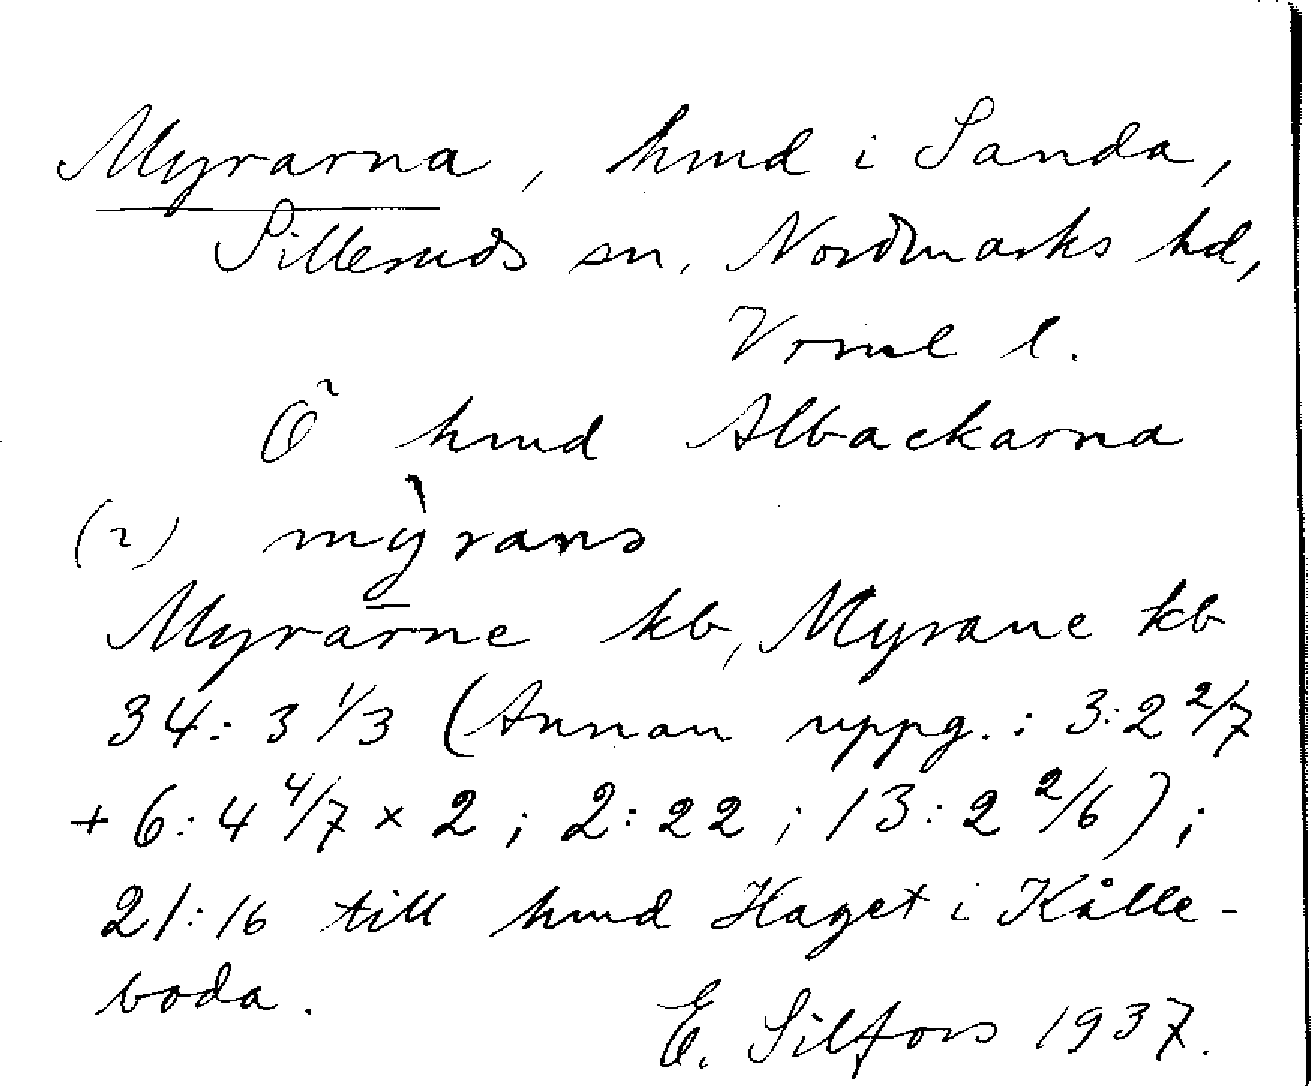 Myrarna, hmd i Sanda,
Silleruds sn, Nordmarks hd,
Vrml l.
Ö hmd Albackarna
(2) mỳrans
Myrarne kb, Myrane kb
34: 3 1/3 (Annan uppg.: 3:2 2/7
+ 6:4 4/7 × 2; 2:22; 13:2 2/6);
21:16 till hmd Haget i Kålle-
boda.
E. Silfors 1937.